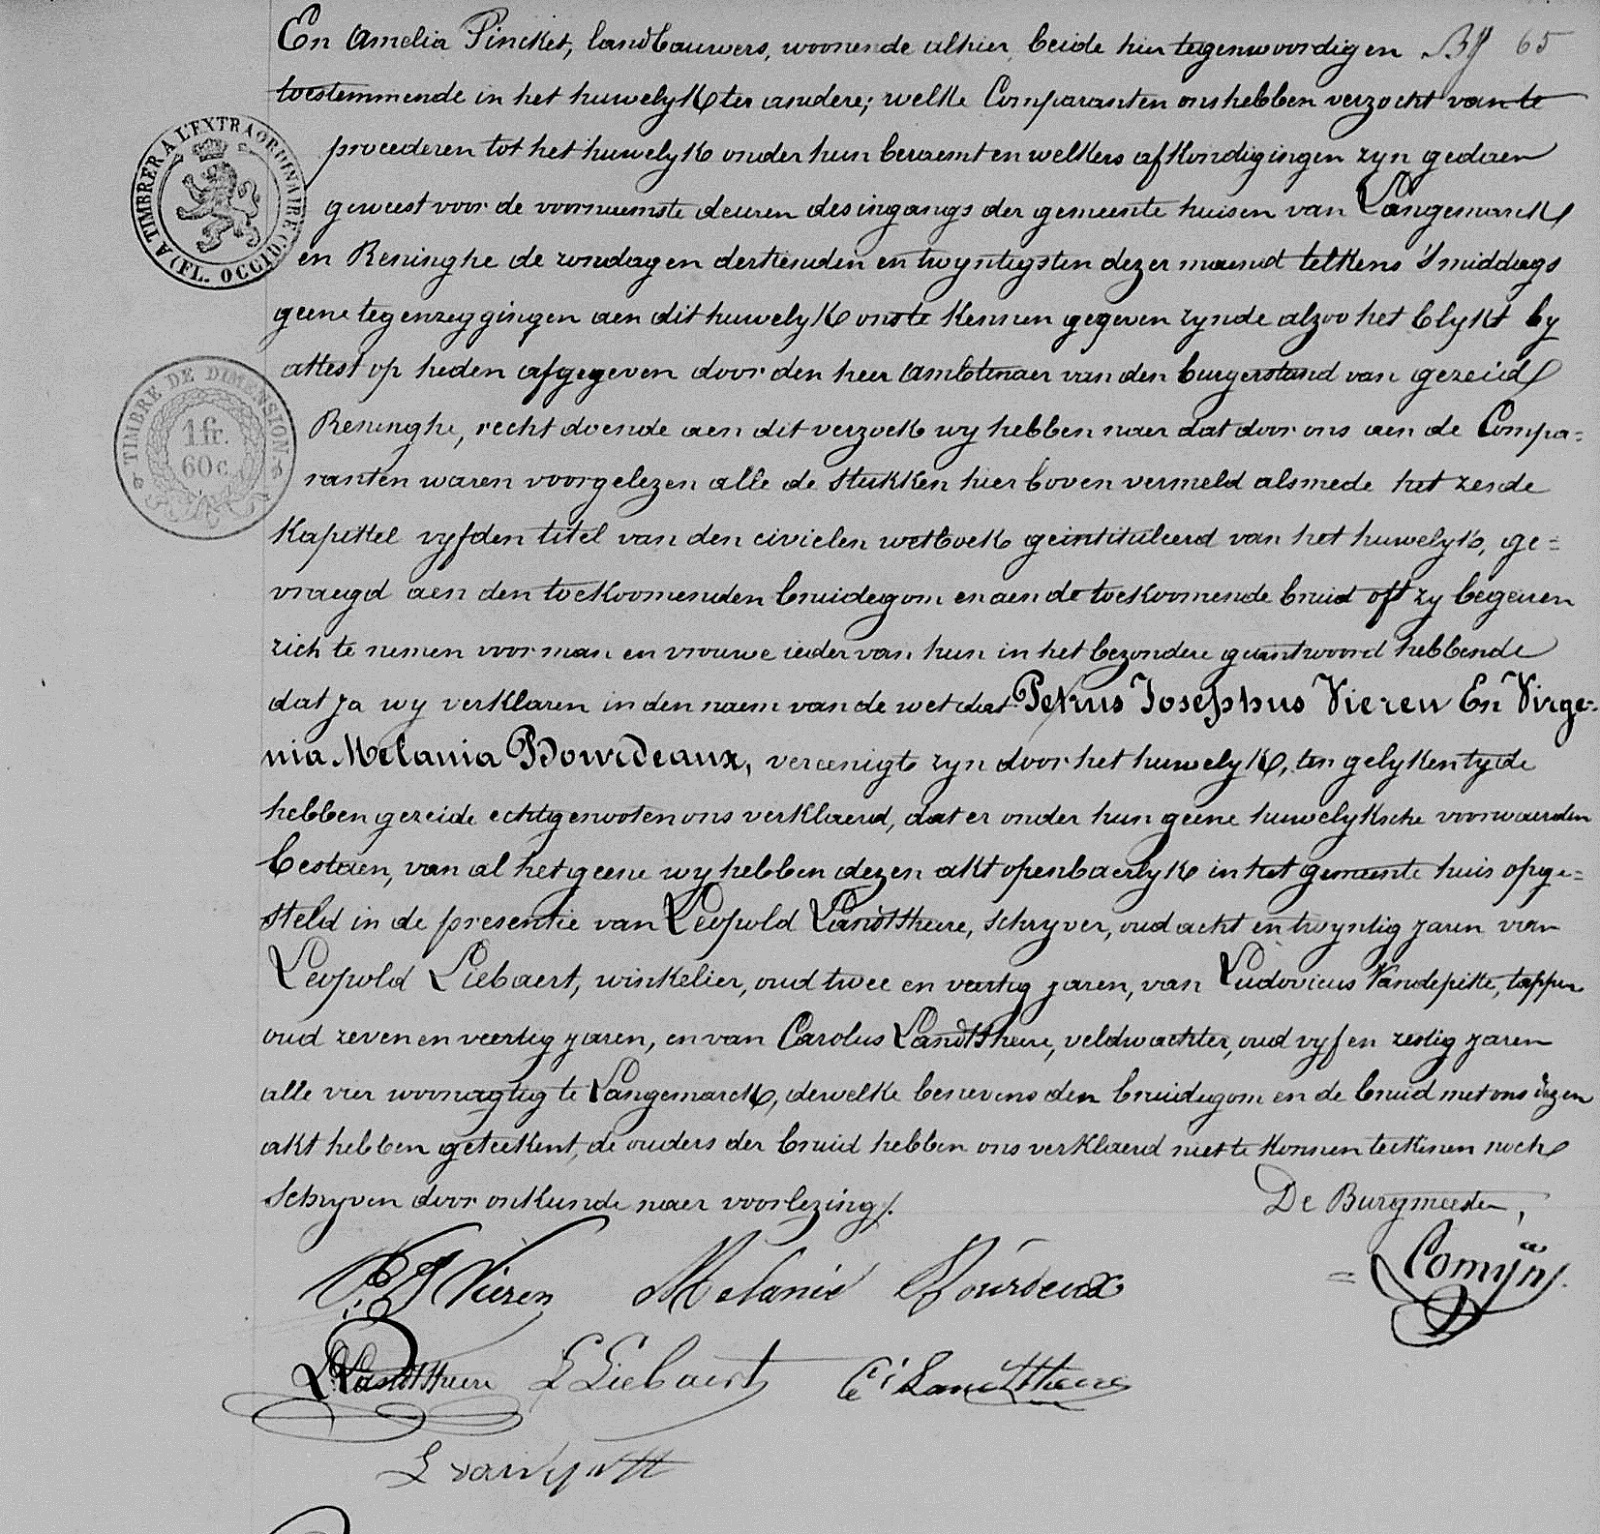 En Amelia Pincket, landbouwers, woonende alhier, beide hier tegenwoordig en 65
toestemmende in het huwelyk ter andere; welke Comparanten ons hebben verzocht van te
proceederen tot het huwelyk onder hun beraemt en welkers afkondigingen zyn gedaen
geweest voor de voornaemste deuren des ingangs der gemeente huisen van Langemarck
en Reninghe de zondagen dertienden en twyntigsten dezer maend telkens 's middags
geene tegenzeggingen aen dit huwelyk ons te kennen gegeven zynde alzoo het blykt by
attest op heden afgegeven door den heer ambtenaer van den burgerstand van gezeid
Reninghe, recht doende aen dit verzoek wy hebben naer dat door ons aen de Compa=
ranten waren voorgelezen alle de stukken hier boven vermeld alsmede het zesde
Kapittel vyfden titel van den civielen wetboek geintituleerd van het huwelyk, ge=
vraegd aen den toekoomenden bruidegom en aen de toekoomende bruid oft zy begeeren
zich te nemen voor man en vrouwe ieder van hun in het bezondere geantwoord hebbende
dat ja wy verklaren in den naem van de wet dat Petrus Josephus Vieren En Virge=
nia Melania Bourdeaux, vereenigt zyn door het huwelyk, ten gelyken tyde
hebben gezeide echtgenooten ons verklaerd, dat er onder hun geene huwelyksche voorwaerden
bestaen, van al het geene wy hebben dezen akt openbaerlyk in het gemeente huis opge=
steld in de presentie van Leopold Landtsheere, schryver, oud acht en twyntig jaren van
Leopold Liebaert, winkelier, oud twee en veertig jaren, van Ludovicus Vandepitte, tapper
oud zeven en veertig jaren, en van Carolus Landtsheere, veldwachter, oud vyf en zestig jaren
alle vier woonagtig te Langemarck, dewelke benevens den bruidegom en de bruid met ons dezen
akt hebben geteekent, de ouders der bruid hebben ons verklaerd niet te konnen teekenen noch
schryven door onkunde naer voorlezing/.
De Burgmeester,
Vieren Melanie Bourdeux Comÿn
L Landtsheere L Liebaert Landtsheere
L vandepitte
A TIMBRER A L'EXTRAORDINAIRE (FL. OCCID.)
TIMBRE DE DIMENSION.
1 fr.
60 c.